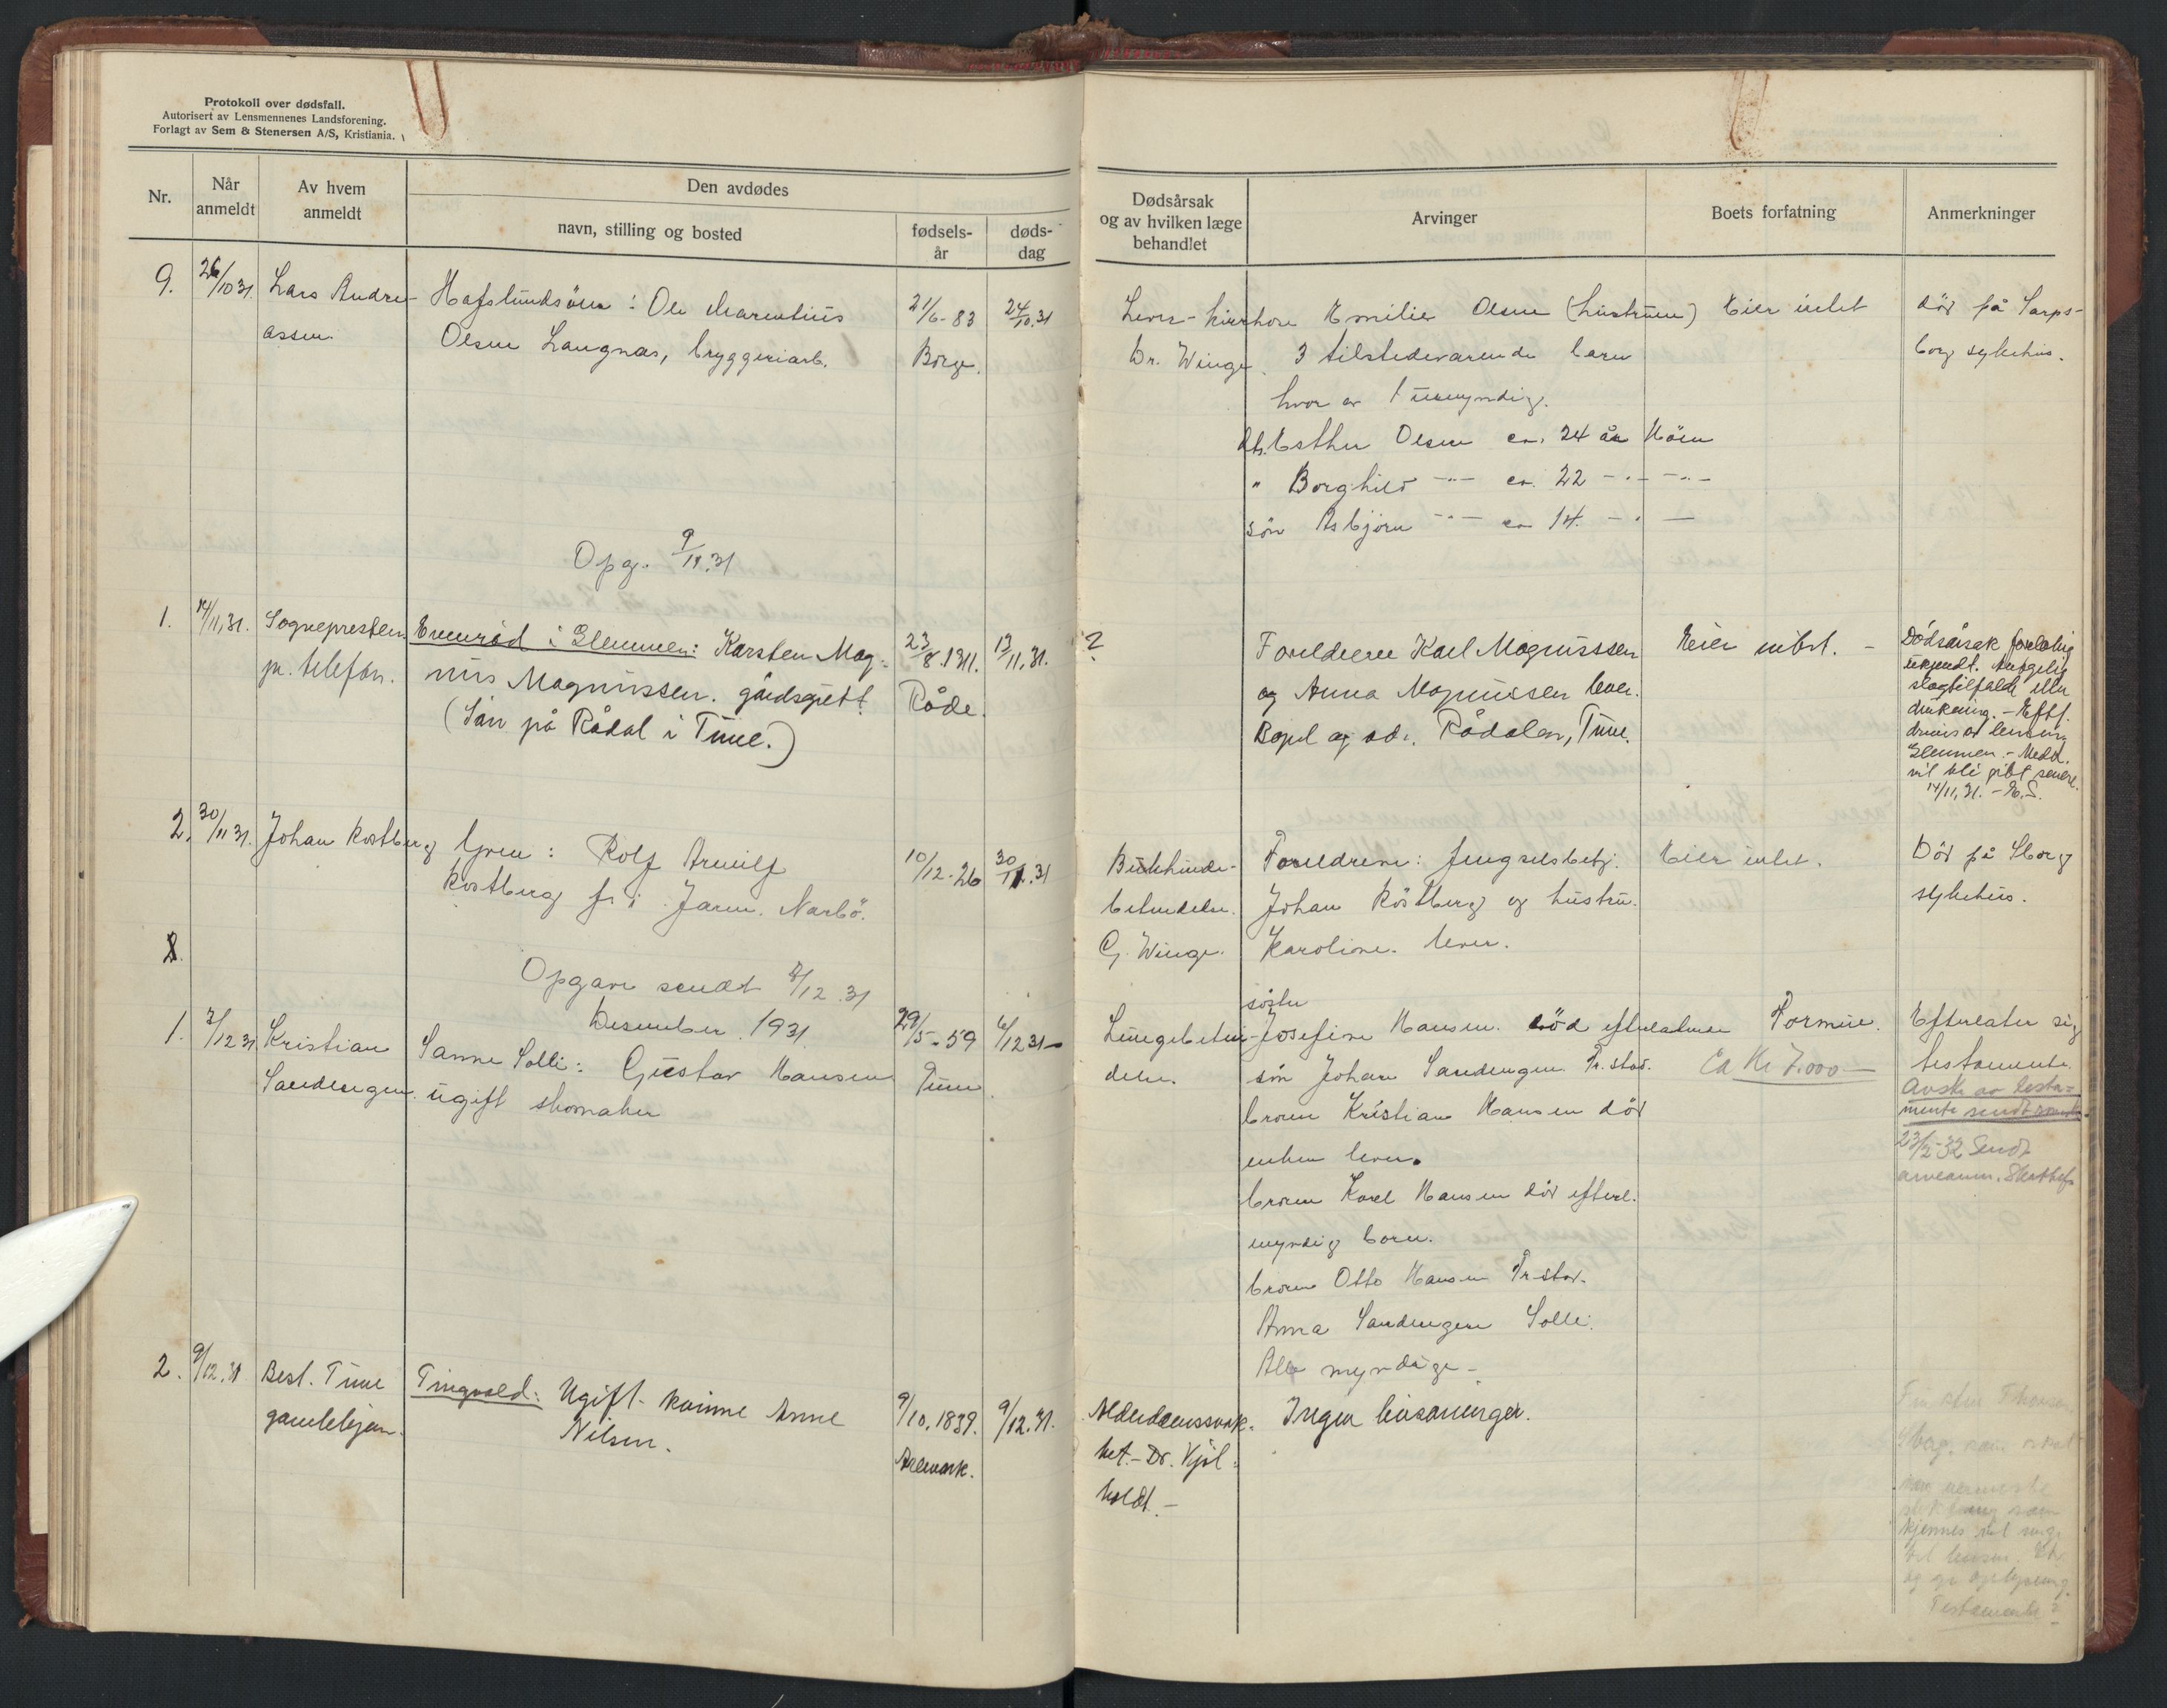 Protokoll over dødsfall.
Autorisert av Lensmennenes Landsforening.
Forlagt av Sem & Stenersen A/S, Kristiania.
Nr.
Når anmeldt
Av hvem anmeldt
Den avdødes
navn, stilling og bosted
fødsels-
år
døds-
dag
Dødsårsak
og av hvilken læge
behandlet
Arvinger
Boets forfatning
Anmerkninger
9. 26/10 31. Lars Andre-
assen.
Hafslundsöen: Ole Marentius
Olsen Langnæs, bryggeriarb.
21/6-83
Borge.
24/10.31
Dr. Winge.
Emilie Olsen (hustruen)
3 tilstedeværende barn
hvor av 1 umyndig.
Esther Olsen ca. 24 år
" Borghild -"- ca. 22 -"- -"-
sön Asbjörn -"- ca 14. -"-
Eier intet
död på Sarps-
borg sykehus.
Opg. 9/11.31
1. 14/11.31. Sognepresten
pr. telefon.
Evenröd i Glemmen: Karsten Mag-
nus Magnussen. gårdsgutt
(Sön på Rådal i Tune.)
23/8.1911.
Råde.
13/11.31.
?
Foreldrene Karl Magnussen
og Anna Magnussen lever.
Bopel og adr. Rådalen, Tune.
Eier intet. -
Dödsårsak foreløbig
ukjendt. Antagelig
slagtilfelde eller
drukning. - Eftf.
drives av lensm.
Glemmen. - Medd.
vil bli gibt senere.
14/11.31. - E.S.
2. 30/11 31. Johan Kostberg
Gren: Rolf Arnulf
Kostberg
10/12-26
30/11.31
Bukhinde-
betendelse.
G. Winge.
Foreldrene: fengselsbetj.
JohanKöstberg og hustru
Karoline. lever.
Eier intet.
Död på Sborg
sykehus.
Opgave sendt 2/12 31
Desember 1931.
1. 7/12 31 Kristian
Sandengen.
Sanne Solli: Gustav Hansen
ugift skomaker
29/5-59
Tune
6/12 31
Lungebeten-
delse.
söster
Josefine Hansen. död efterlatende
sön Johan Sandengen Fr.stad.
broren Kristian Hansen död
enken lever.
broren Karl Hansen död efterl.
myndig barn.
broren Otto Hansen Fr.stad.
Anna Sandengen Solli.
Alle myndige -
Formue.
Ca Kr 7.000 -
Efterlater sig
testamente.
Avsk. av testa-
mente sendt
23/2-32 Sendt
2. 9/12.31 Best. Tune
gamlehjem.
Tingvold: Ugift kvinne Anne
Nilsen.
9/10.1839.
Aremark.
9/12.31.
Alderdomssvak-
het. - Dr. Kjöl-
holdt. -
Ingen livsarvinger.
kjennes
Testamente?